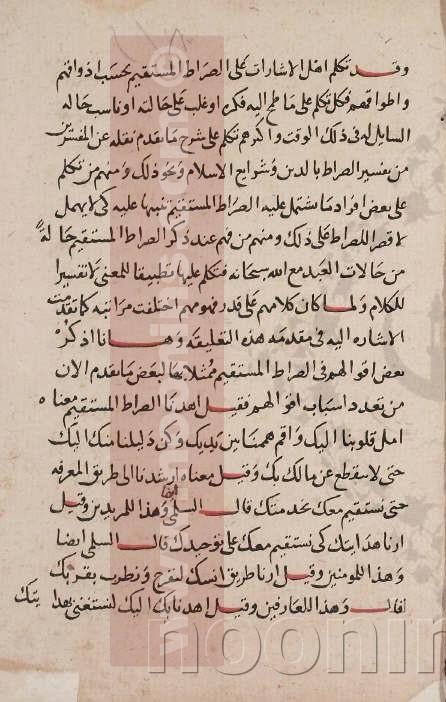 وقد تكلم اهل الاشارات على الصراط المستقيم بحسب اذواقهم
واطواقهم فكل تكلم على ما طمح اليه فكره او غلب على حالته او ناسب حاله
السايل له في ذلك الوقت واكثرهم تكلم على شرح ما تقدم نقله عن المفسرين
من تفسير الصراط بالدين وشرايع الاسلام ونحو ذلك ومنهم من تكلم
على بعض افراد ما يشتمل عليه الصراط المستقيم تنبيها عليه كى لا يهمل
لا قصر اللصراط على ذلك ومنهم من فهم عند ذكر الصراط المستقيم حالة
من حالات العبد مع الله سبحانه فتكلم عليها تطبيقا للمعنى لا تفسيرا
للكلام ولما كان كلامهم على قدر فهومهم اختلفت مراتبه كما تقدمت
الاشاره اليه في مقدمه هذه التعليقه وها انا اذكر
بعض اقوالهم في الصراط المستقيم ممثلا بها لبعض ما تقدم الان
من تعدد اسباب اقوالهم فقيل اهدنا الصراط المستقيم معناه
امل قلوبنا اليك واقم هممنا بين يديك وكن دليلنا منك اليك
حتى لا ينقطع عن مالك بك وقيل معناه ارشدنا الى طريق المعرفه
حتى نستقيم معك بخدمتك قال السلمي وهذا للمريدين وقيل
ارنا هدايتك كى نستقيم معك على توحيدك قال السلمي ايضا
وهذا للمومنين وقيل ارنا طريق انسك لنفرح ونطرب بقربك
قال وهذا للعارفين وقيل اهدنا بك اليك لنستغنى بهدا
يتك
noonin